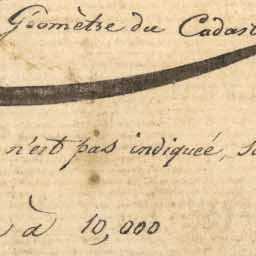 Géomètre du Cadast
n'est pas indiquée, s
à 10,000